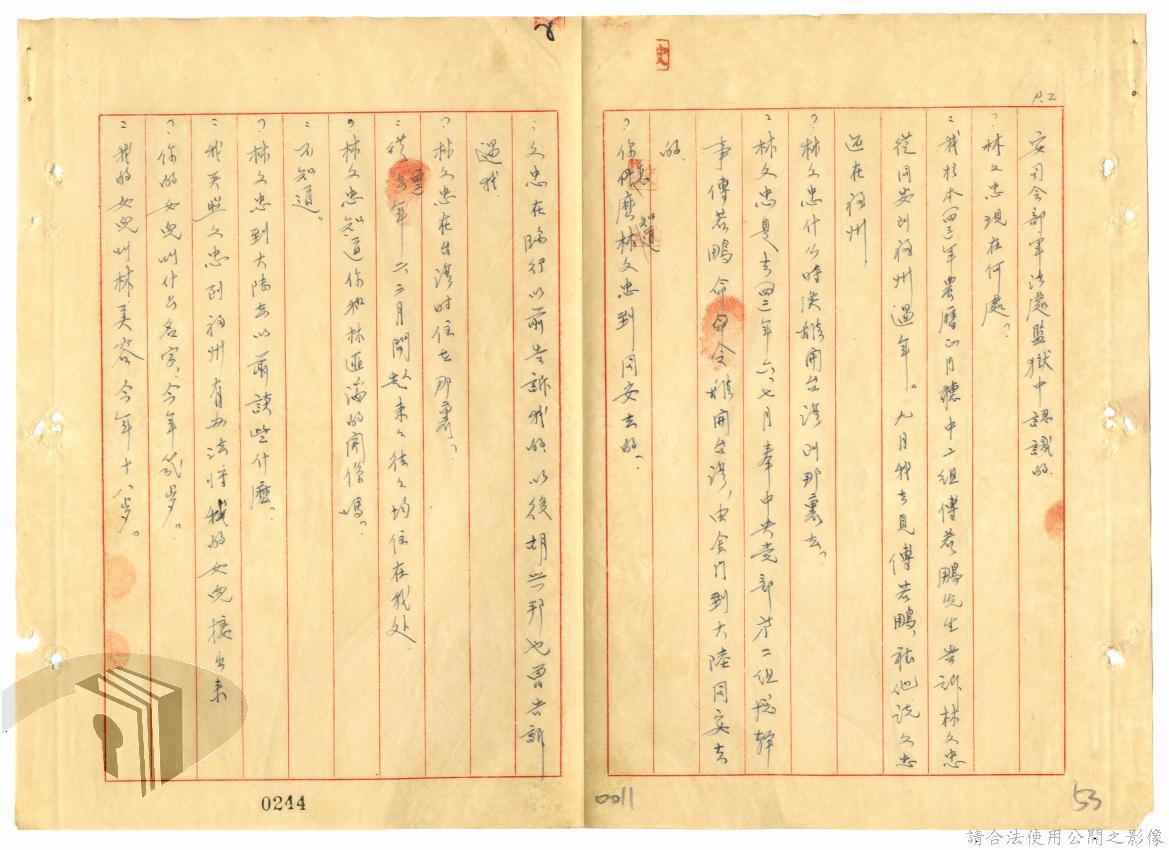 P.2
安司令部軍法處監獄中認識的
？林文忠現在何處？
：我於本（四三）年農曆正月聽中二組傅若鵬先生告訴林文忠
從同安到福州過年。九月我去見傅若鵬，據他說文忠
還在福州
？林文忠什么時候離開台湾到那裏去？
：林文忠是去（四二）年六、七月奉中央党部第二組總幹
事傅若鵬命令離開台湾，由金门到大陸同安去
的
？你怎麼知道林文忠到同安去的？
：文忠在臨行以前告訴我的，以後胡興邦也曾告訴
過我
？林文忠在台湾时住在那裏？
：從去年二三月間起来来往往均住在我处
？林文忠知道你和林匪瀚的関係嗎？
：不知道。
？林文忠到大陸去以前談些什麼？
：我关照文忠到福州有办法将我的女兒接出来
？你的女兒叫什么名字，今年幾岁？
：我的女兒叫林美容今年十八岁。
0244
0011
53
請合法使用公開之影像